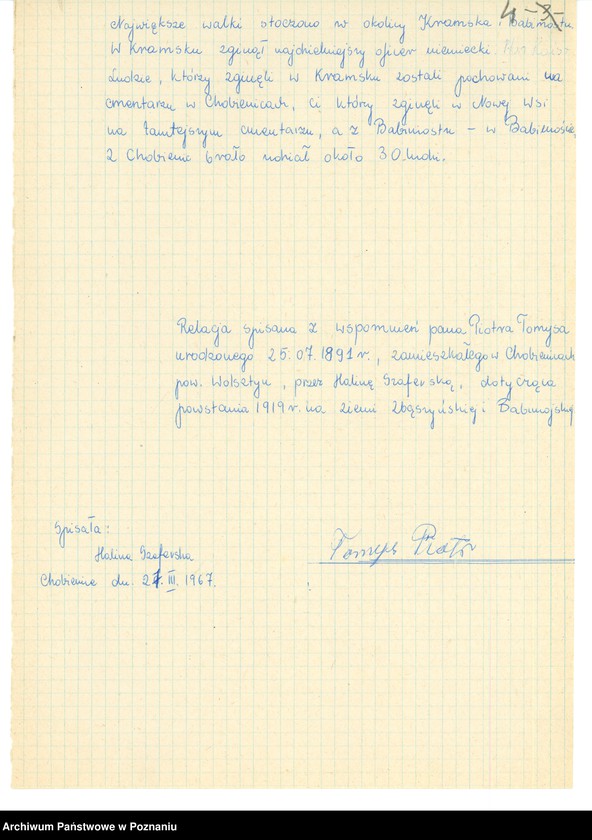 4
Największe walki stoczono w okolicy Kramska i Babimostu
W Kramsku zginął najdzielniejszy oficer niemiecki.
Ludzie, którzy zginęli w Kramsku zostali pochowani na
cmentarzu w Chobienicach, ci który zginęli w Nowej Wsi
na tamtejszym cmentarzu, a z Babimostu - w Babimoście
Z Chobienic brało udział około 30 ludzi.
Relacja spisana z wspomnień pana Piotra Tomysa
urodzonego 25.07.1891 r., zamieszkałego w Chobienicach
pow. Wolsztyn, przez Halinę Szaferską, dotycząca
powstania 1919 r. na ziemi zbąszyńskiej i Babimojskiej
Spisała:
Halina Szaferska
Tomys Piotr
Chobienice dn. III. 1967.
Archiwum Państwowe w Poznaniu